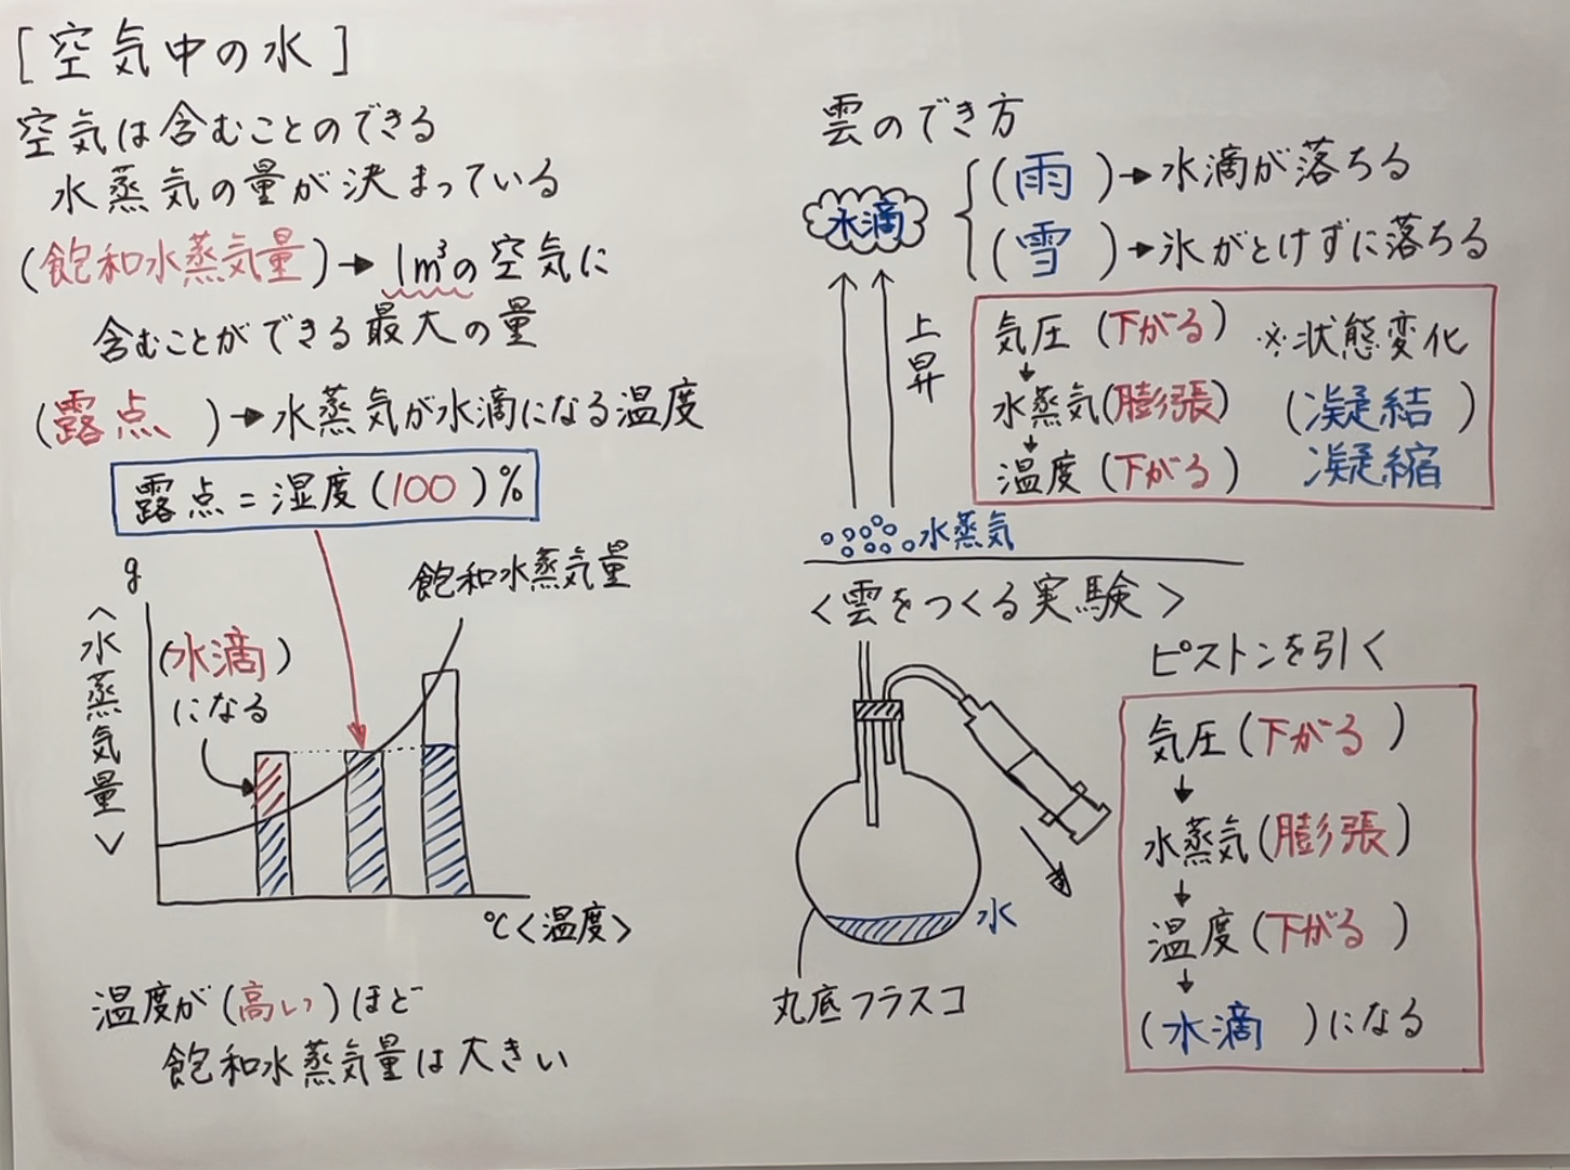 [空気中の水]
空気は含むことのできる
水蒸気の量が決まっている
(飽和水蒸気量)→1m³の空気に
含むことができる最大の量
(露点)→水蒸気が水滴になる温度
露点=湿度(100)%
g
<水蒸気量>
飽和水蒸気量
(水滴)
になる
℃<温度>
温度が(高い)ほど
飽和水蒸気量は大きい
雲のでき方
水滴
(雨)→水滴が落ちる
(雪)→氷がとけずに落ちる
上昇
気圧(下がる)
↓
水蒸気(膨張)
↓
温度(下がる)
※状態変化
(凝結)
凝縮
水蒸気
<雲をつくる実験>
ピストンを引く
水
丸底フラスコ
気圧(下がる)
↓
水蒸気(膨張)
↓
温度(下がる)
↓
(水滴)になる